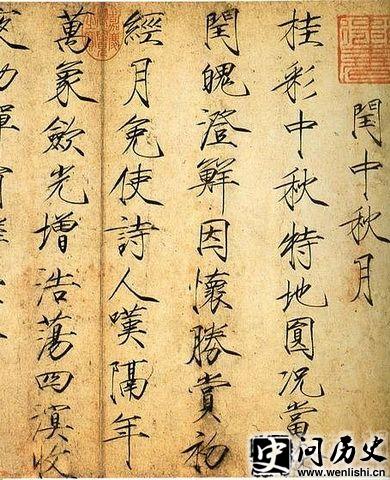 閏中秋月
桂彩中秋特地圓况當
閏魄澄鮮因懷勝賞初
經月免使詩人嘆隔年
萬象歛光增浩蕩四溟收
问历史
www.wenlishi.cn